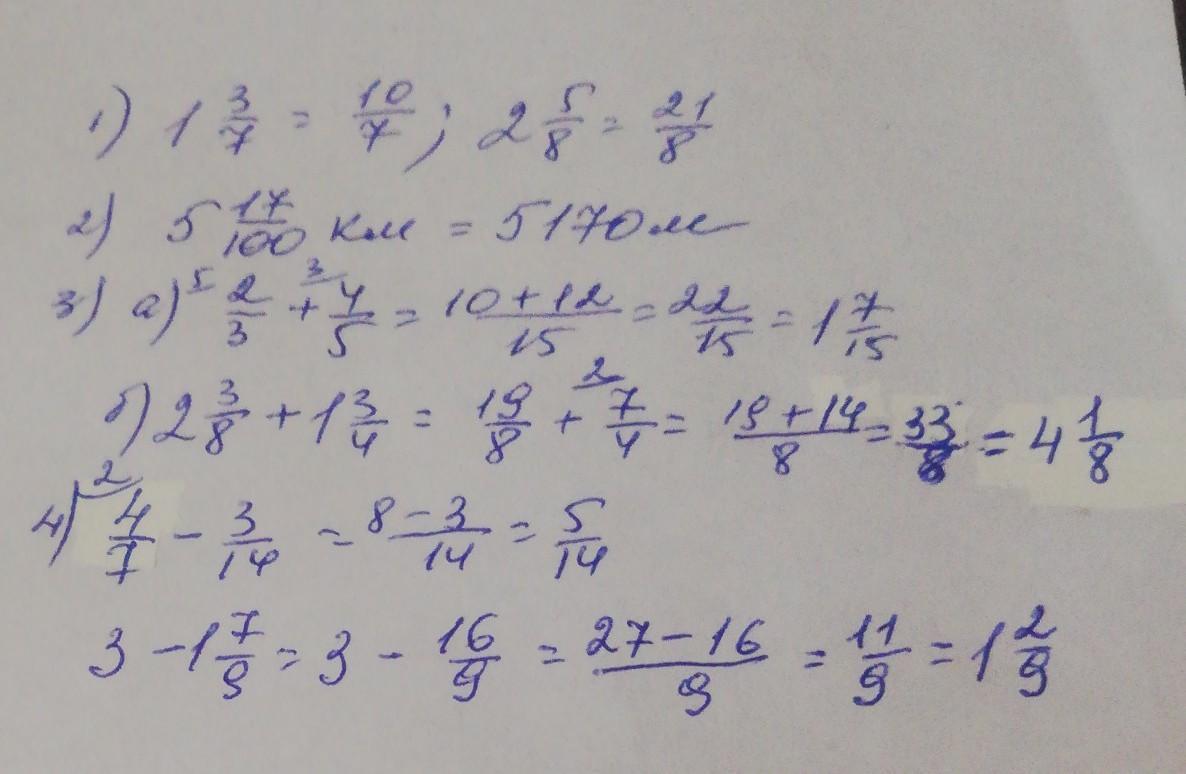 1) 1 3/7 = 10/7 ; 2 5/8 = 21/8
2) 5 17/100 км = 5170м
3) а) ⁵ 2/3 + ³ 4/5 = (10+12)/15 = 22/15 = 1 7/15
б) 2 3/8 + 1 3/4 = 19/8 + ² 7/4 = (19+14)/8 = 33/8 = 4 1/8
4) ² 4/7 - 3/14 = (8-3)/14 = 5/14
3 - 1 7/9 = 3 - 16/9 = (27-16)/9 = 11/9 = 1 2/9